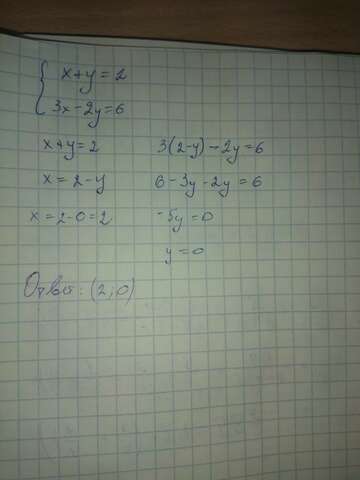 x+y=2
3x-2y=6
x+y=2
x=2-y
x=2-0=2
3(2-y)-2y=6
6-3y-2y=6
-5y=0
y=0
Ответ: (2;0)